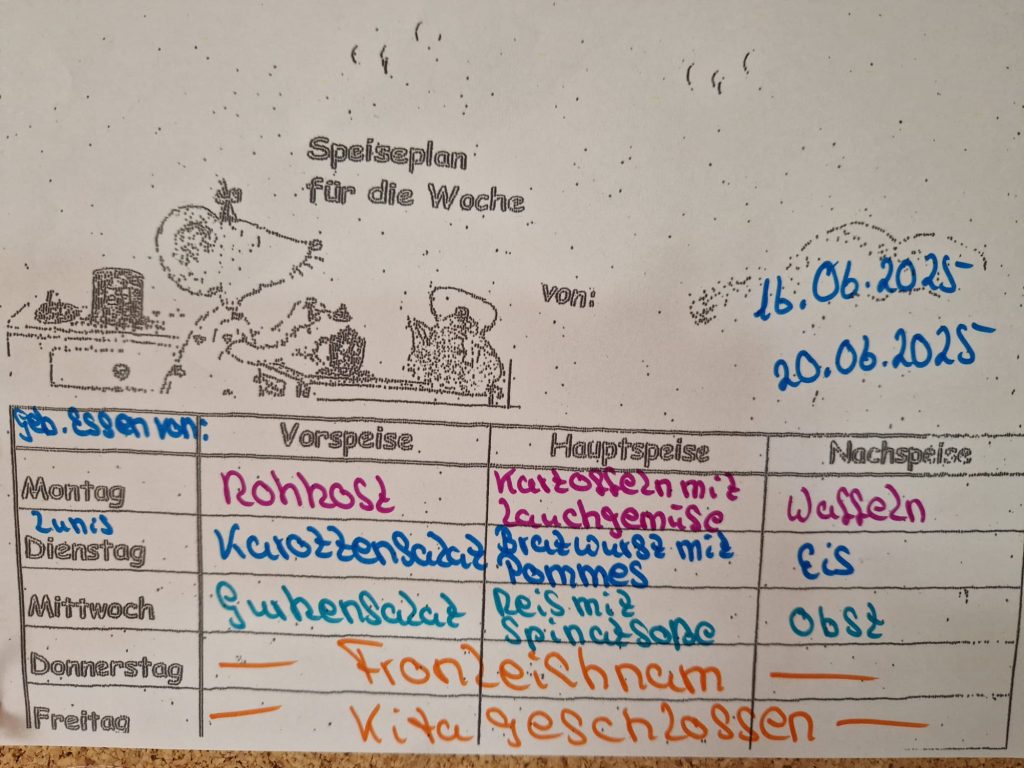 Speiseplan
für die Woche
von:
16.06.2025
20.06.2025
Geb. Essen von:
Vorspeise Hauptspeise Nachspeise
Montag Rohkost Kartoffeln mit Lauchgemüse Waffeln
Dienstag Karottensalat Bratwurst mit Pommes Eis
Mittwoch Gurkensalat Reis mit Spinatsoße Obst
Donnerstag — Fronleichnam —
Freitag — Kita geschlossen —